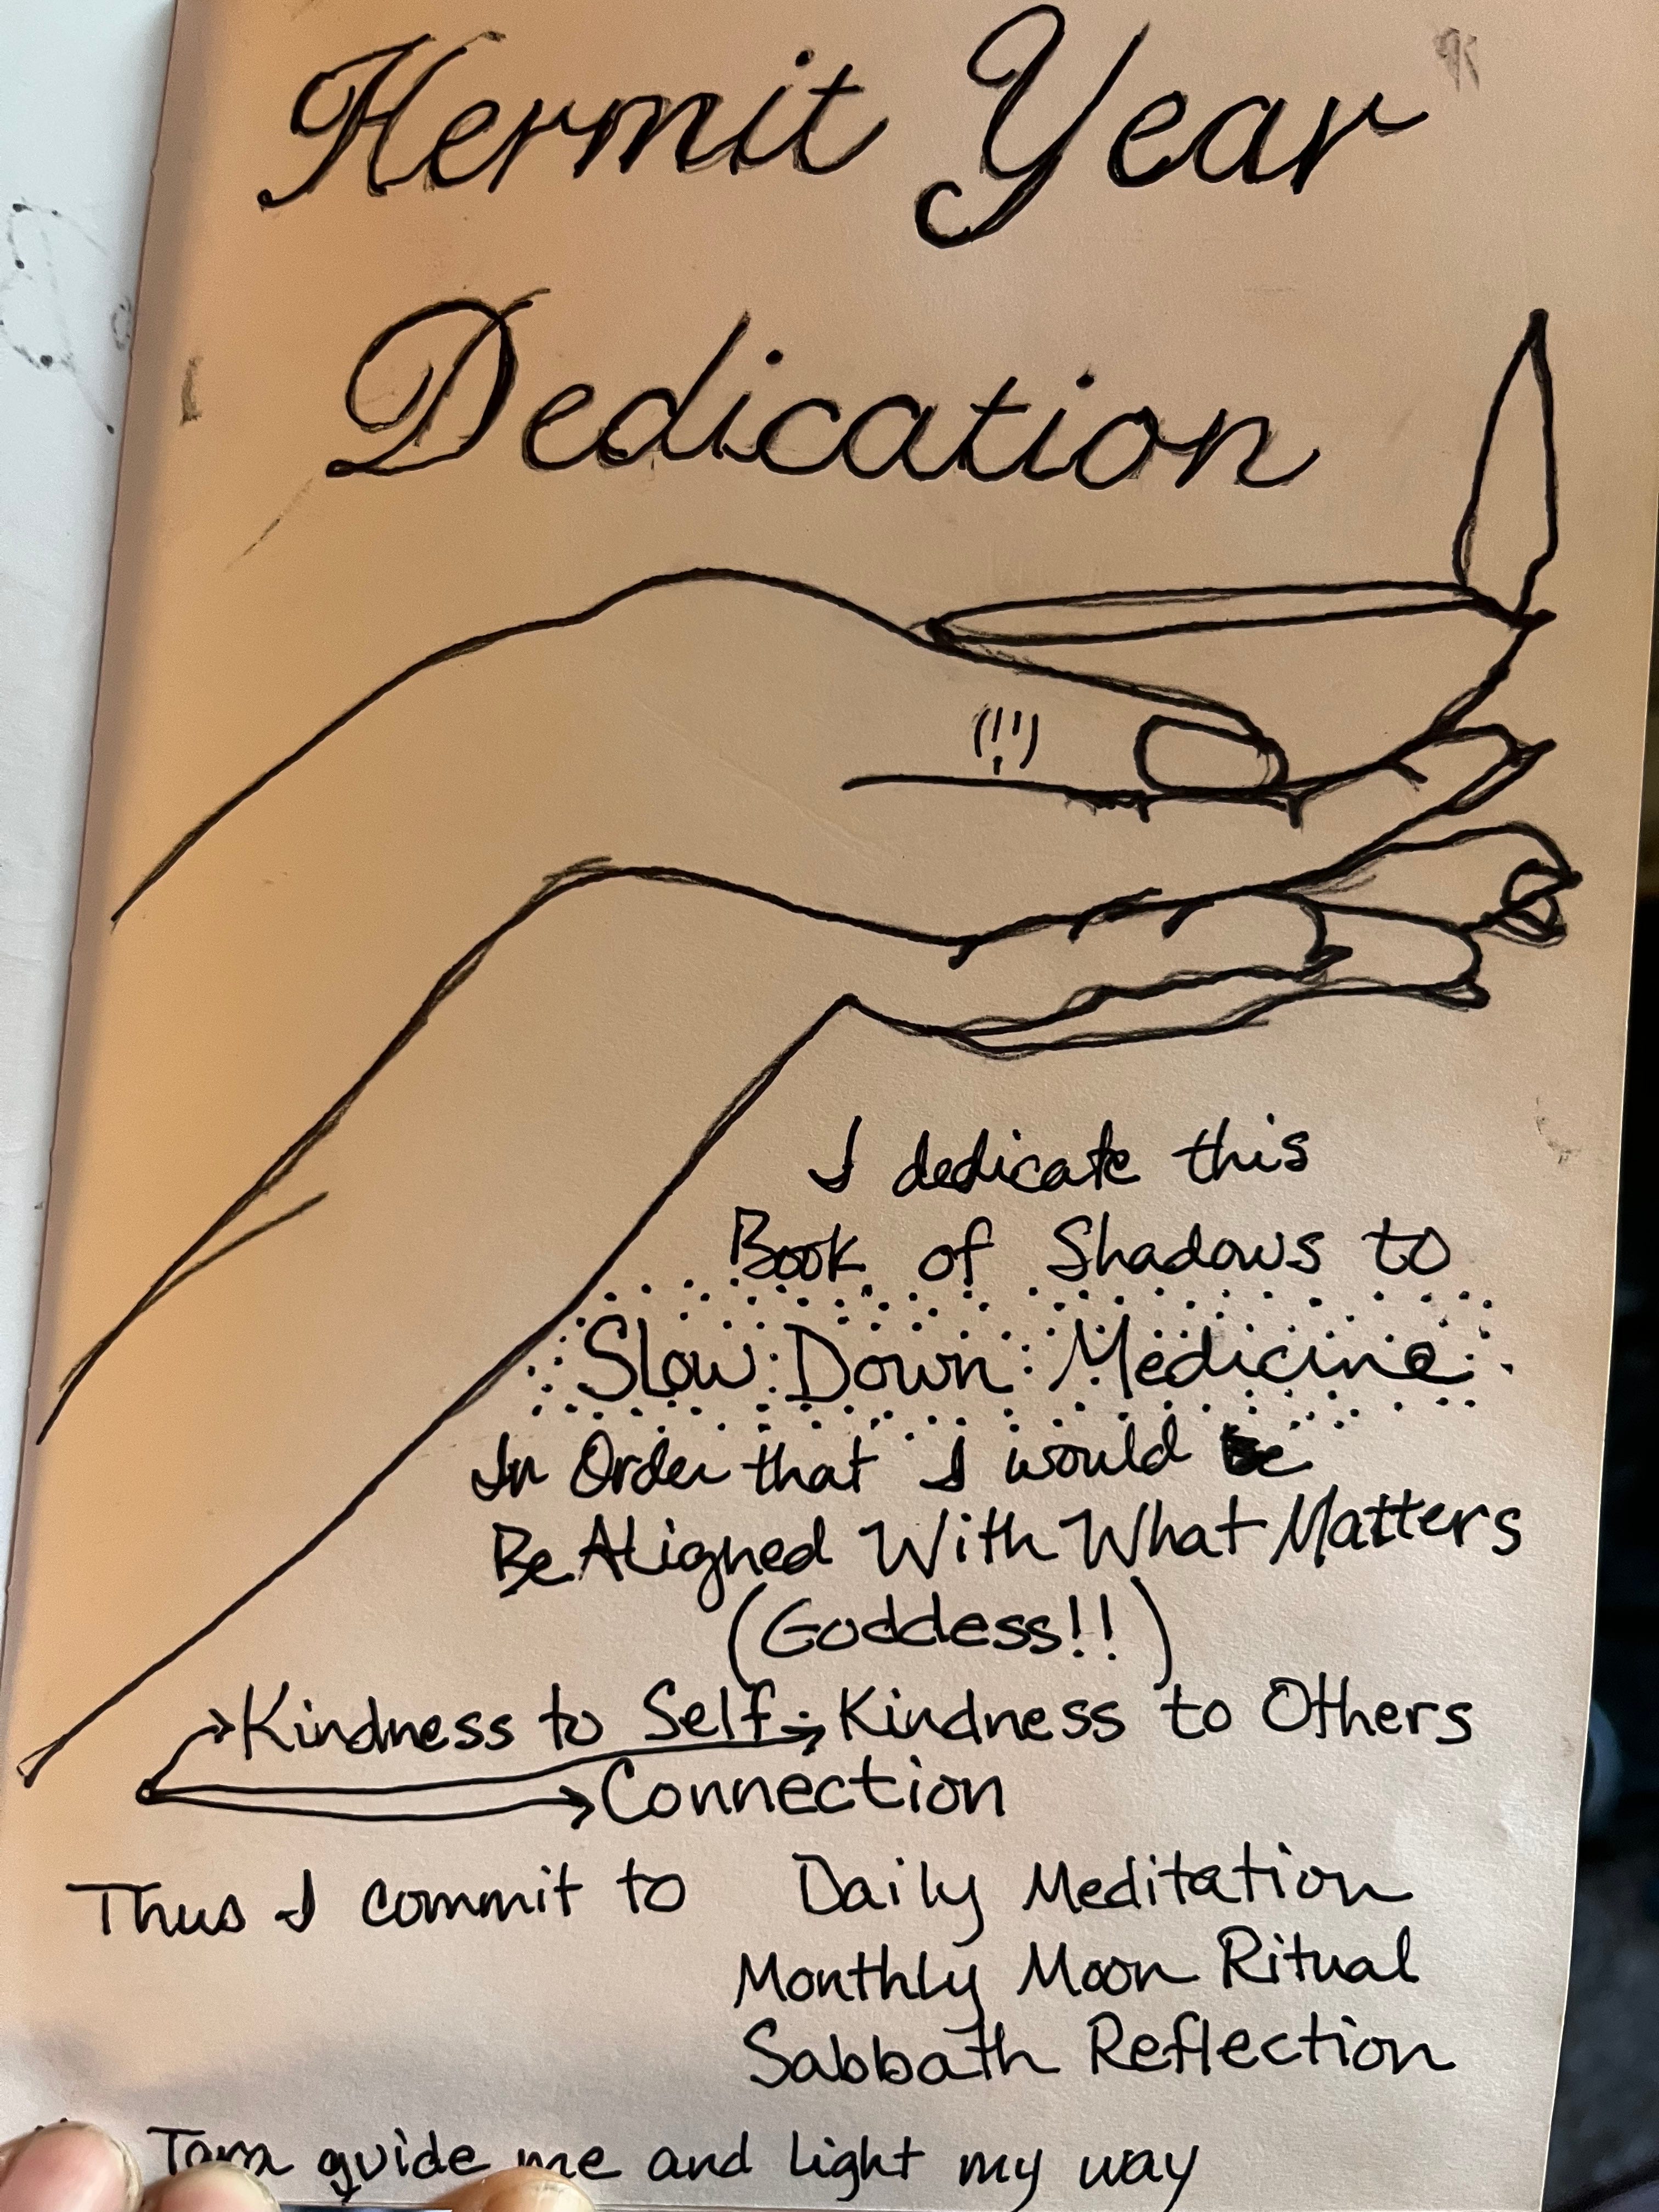 Hermit Year
Dedication
(!!)
I dedicate this
Book of Shadows to
Slow Down Medicine
In Order that I would be
Be Aligned With What Matters
(Goddess!!)
Kindness to Self Kindness to Others
Connection
Thus I commit to Daily Meditation
Monthly Moon Ritual
Sabbath Reflection
Tara guide me and light my way